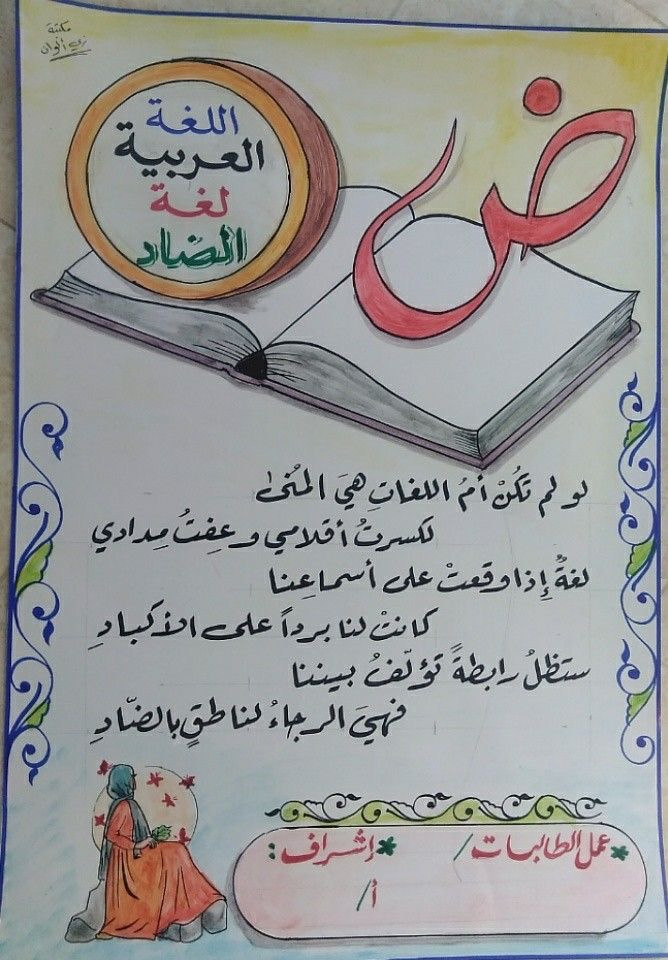 مكتبة
زي ألوان
ض
اللغة
العربية
لغة
الضاد
لو لم تكُنْ أمُ اللغاتِ هيَ المُنىٰ
لكسرتُ أقلامي وعِفتُ مِدادي
لغةٌ إذا وقعتْ على أسماعِنا
كانتْ لنا برداً على الأكبادِ
ستظلُ رابطةً تؤلّفُ بيننا
فهيَ الرجاءُ لناطقٍ بالضّادِ
عمل الطالبات/
إشراف:
أ/